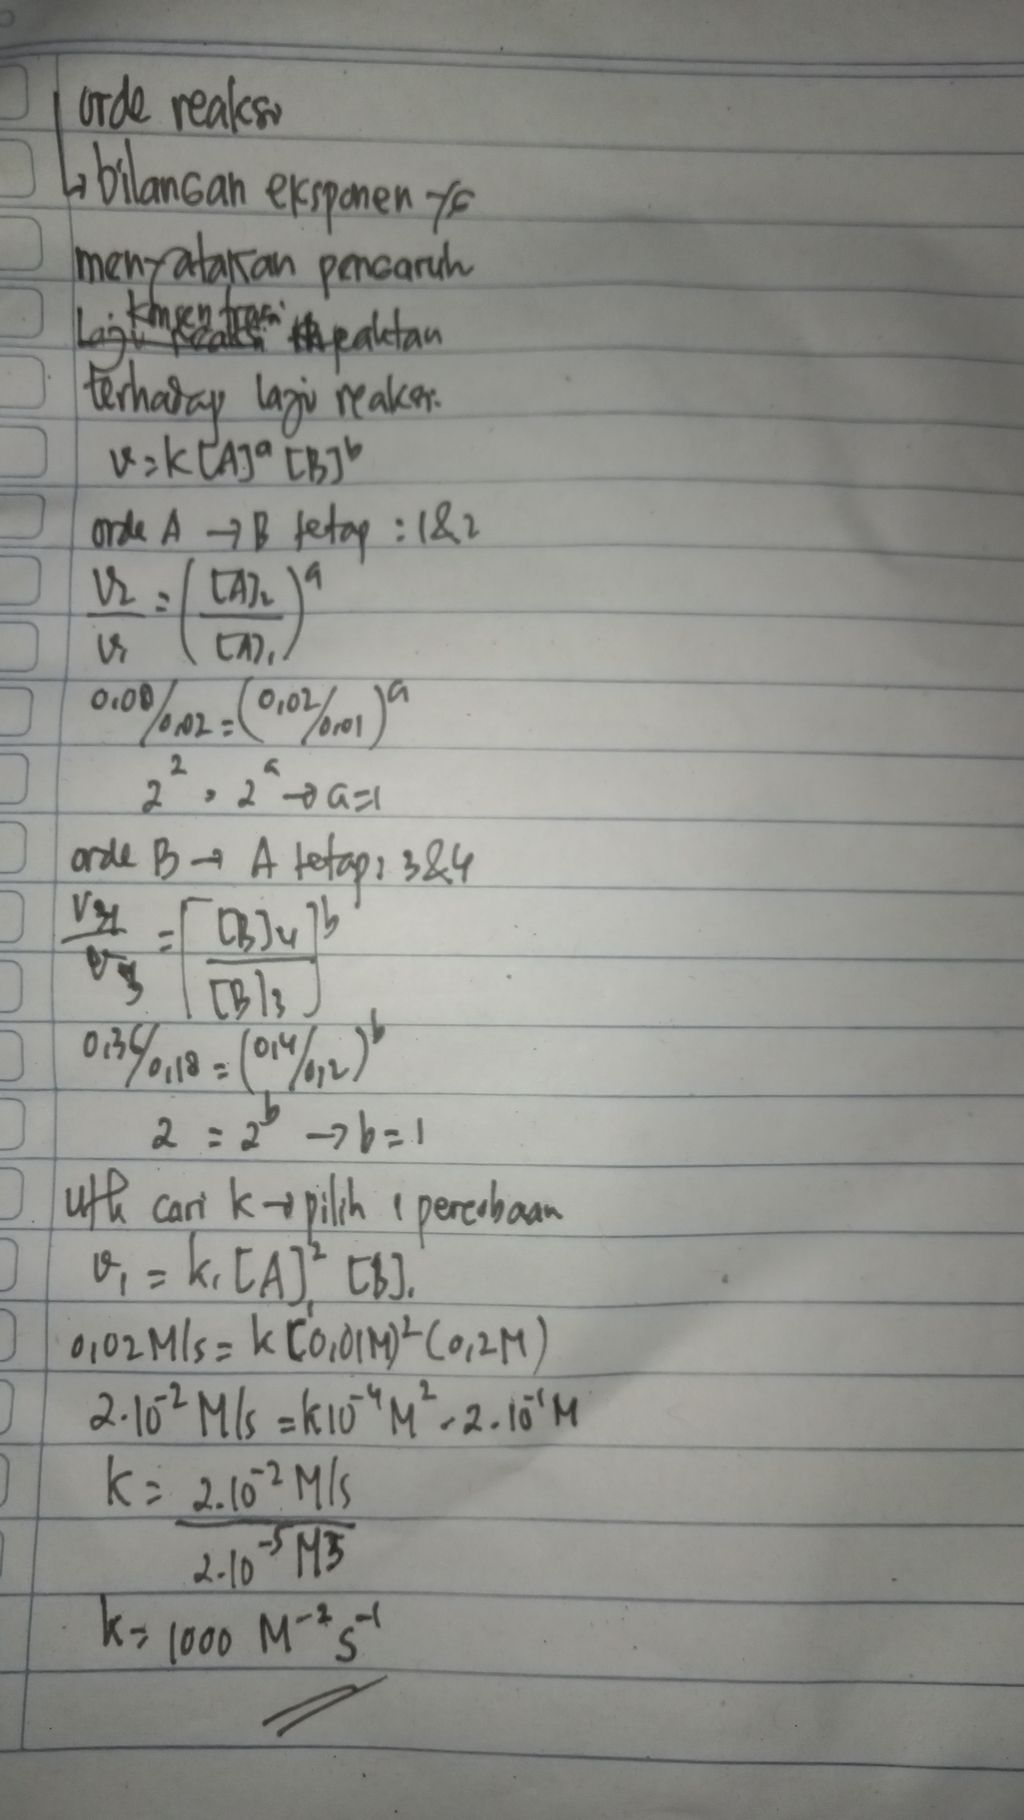 orde reaksi
↳ bilangan eksponen yg
menyatakan pengaruh
konsentrasi reaktan
terhadap laju reaksi.
v = k [A]ᵃ [B]ᵇ
orde A → B tetap : 1 & 2
V₂/V₁ = ([A]₂/[A]₁)ᵃ
0,08/0,02 = (0,02/0,01)ᵃ
2² = 2ᵃ → a=1
orde B → A tetap : 3 & 4
V₄/V₃ = [[B]₄/[B]₃]ᵇ
0,36/0,18 = (0,4/0,2)ᵇ
2 = 2ᵇ → b = 1
utk cari k → pilih 1 percobaan
v₁ = k. [A]₁² [B]₁
0,02 M/s = k (0,01M)² (0,2M)
2.10⁻² M/s = k 10⁻⁴ M² . 2.10⁻¹ M
k = 2.10⁻² M/s / 2.10⁻⁵ M3
k = 1000 M⁻² s⁻¹